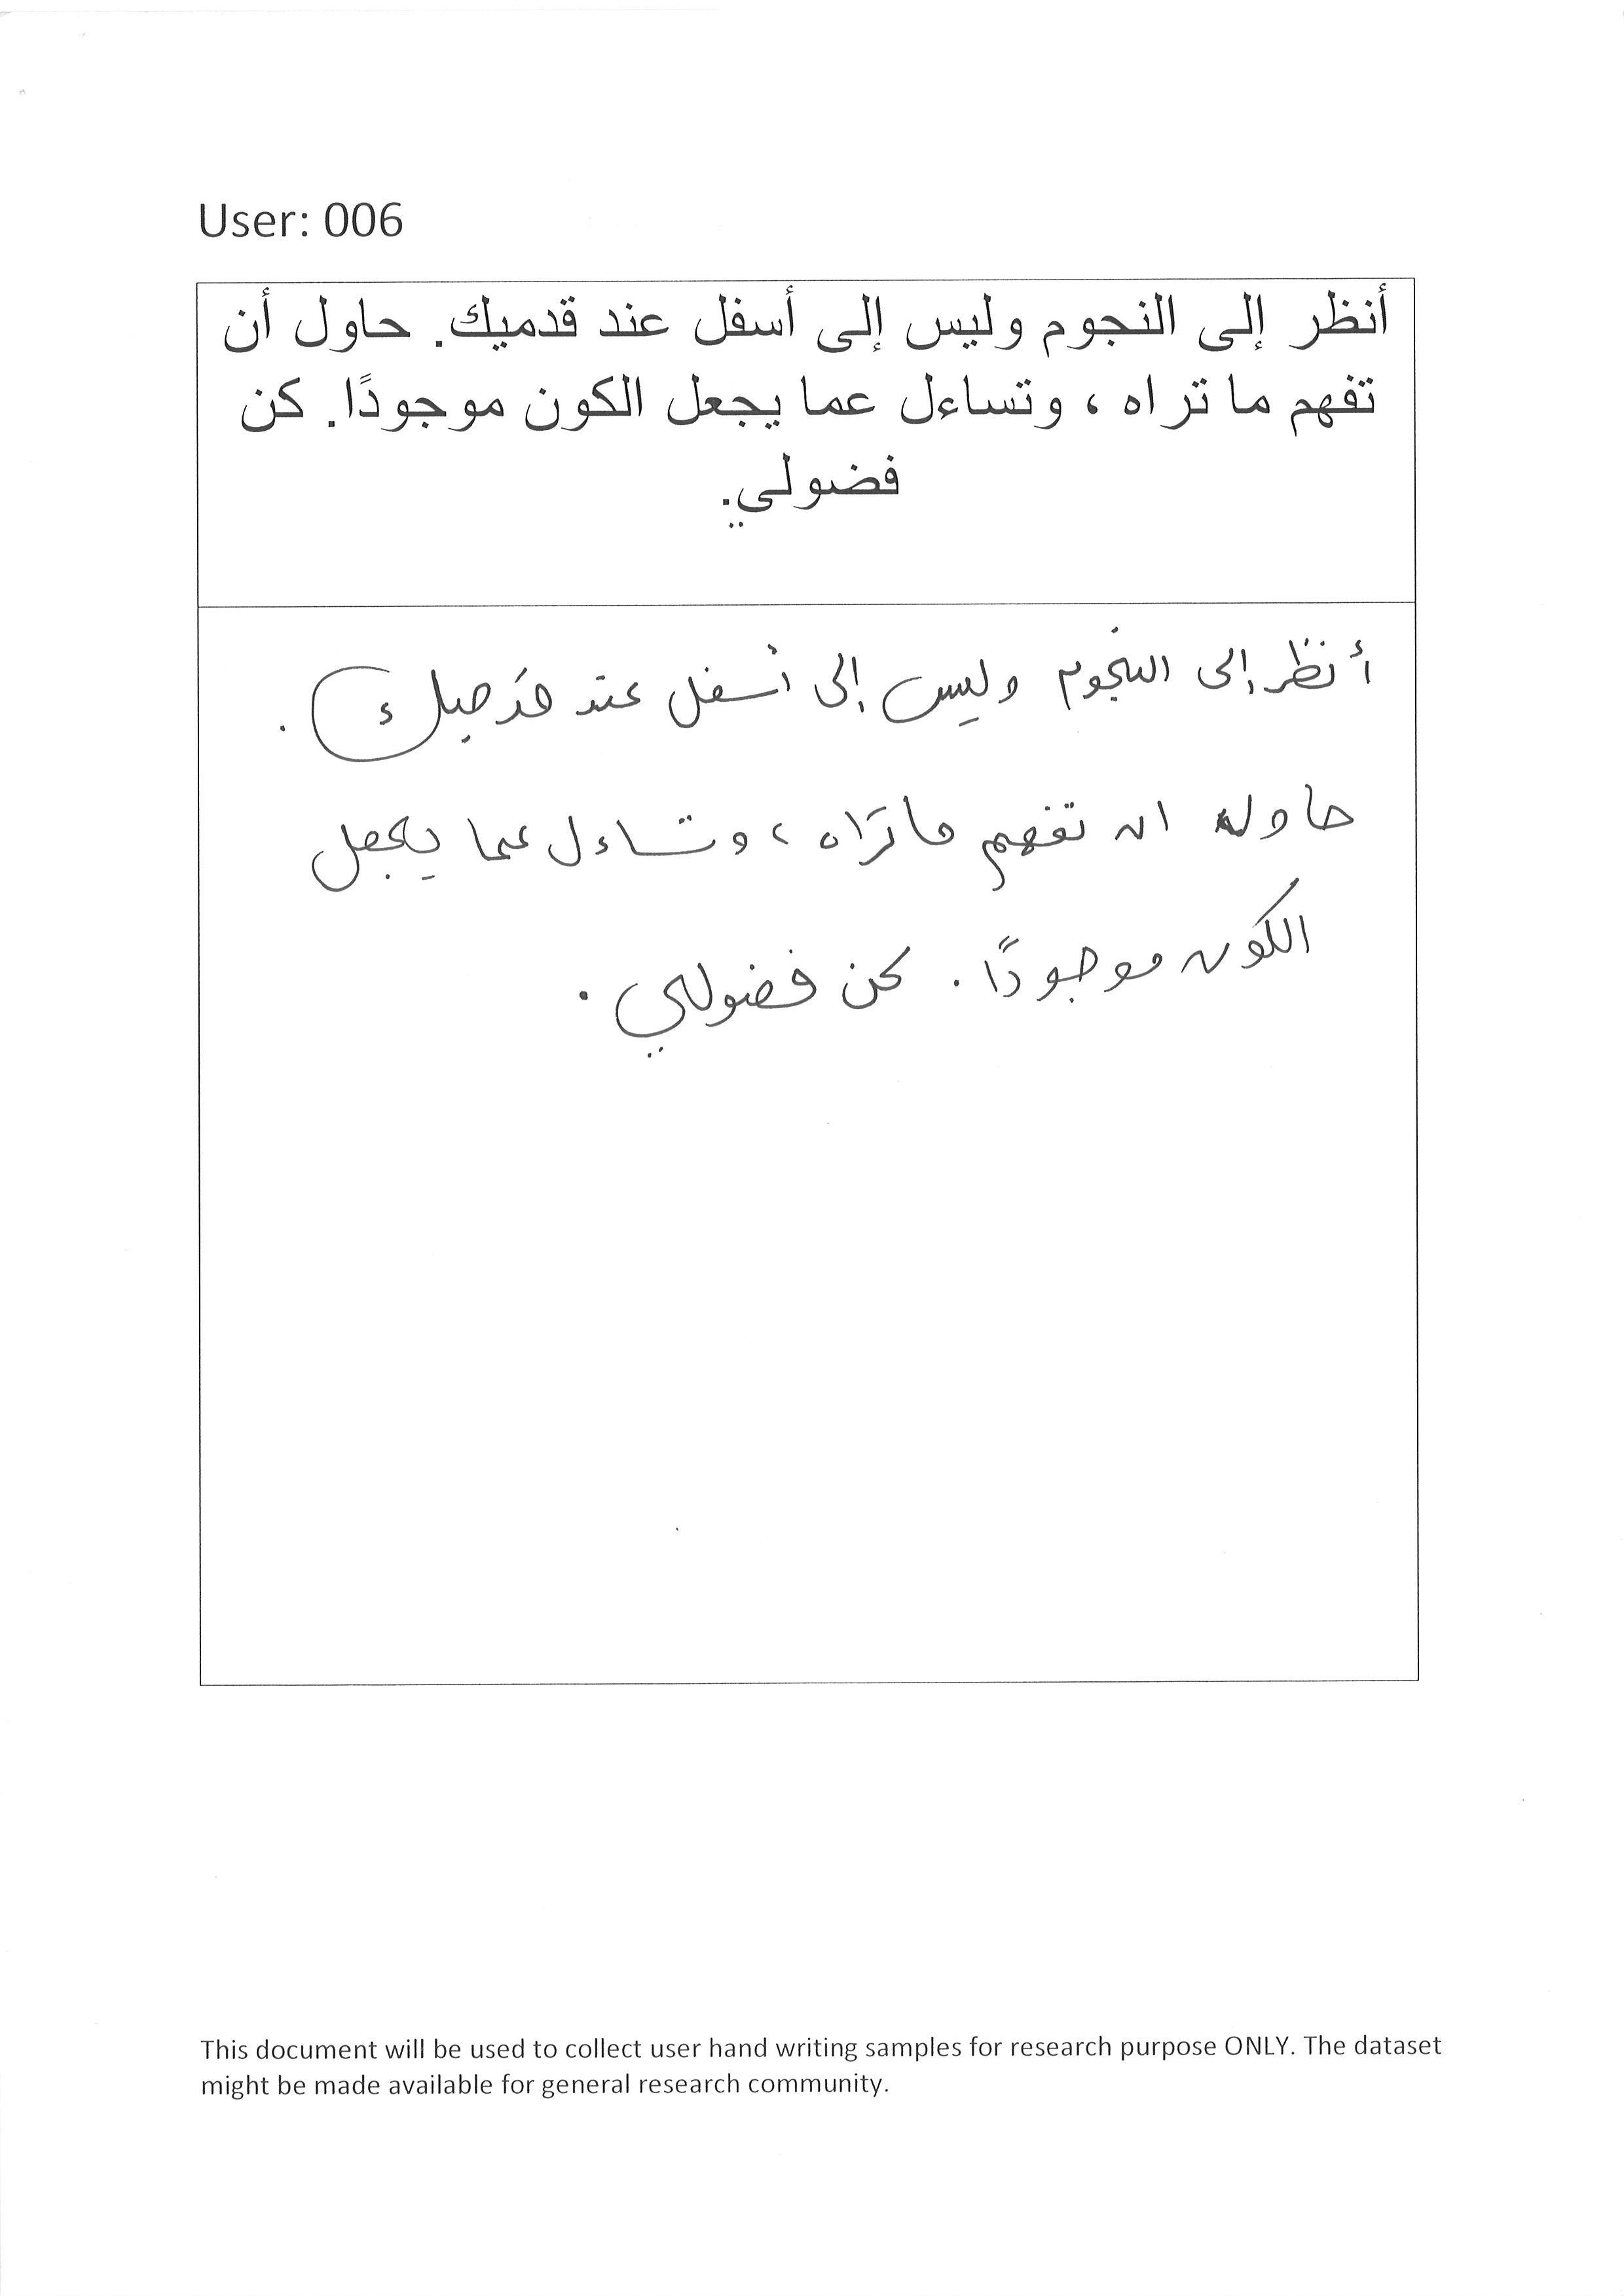 User: 006
أنظر إلى النجوم وليس إلى أسفل عند قدميك. حاول أن
تفهم ما تراه ، وتساءل عما يجعل الكون موجودًا. كن
فضولي.
أنظر إلى النجوم وليس إلى أسفل عند قدميك .
حاول ان تفهم ما تراه ، وتساءل عما يجعل
الكون موجودًا . كن فضولي .
This document will be used to collect user hand writing samples for research purpose ONLY. The dataset
might be made available for general research community.